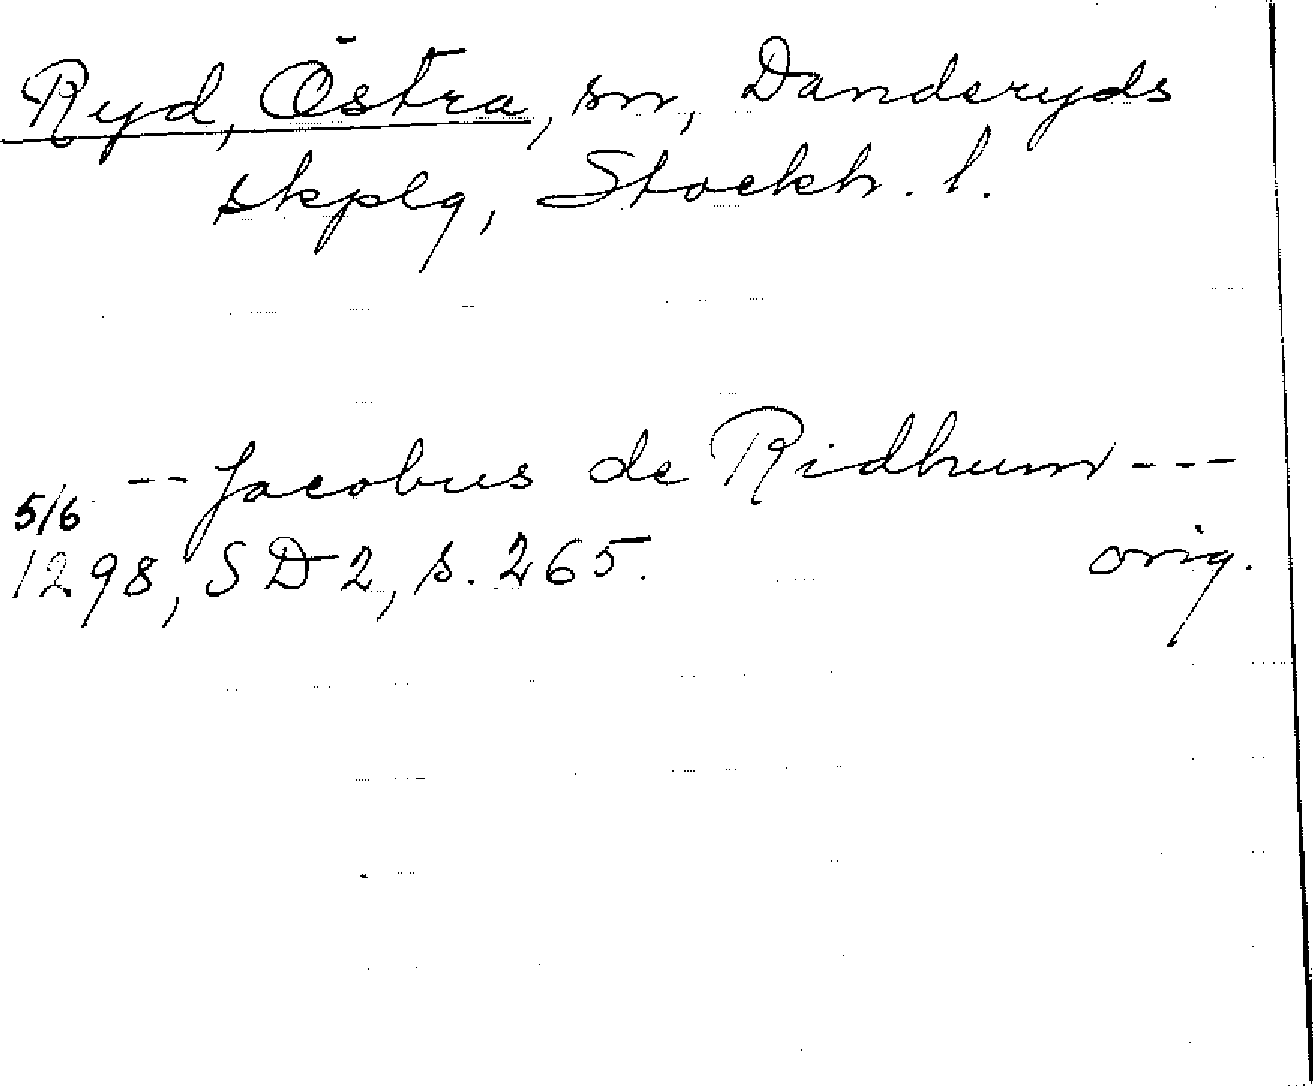 Ryd, Östra, sn, Danderyds
skplg, Stockh. l.
-- Jacobus de Ridhum ---
5/6
1298, SD 2, s. 265. orig.